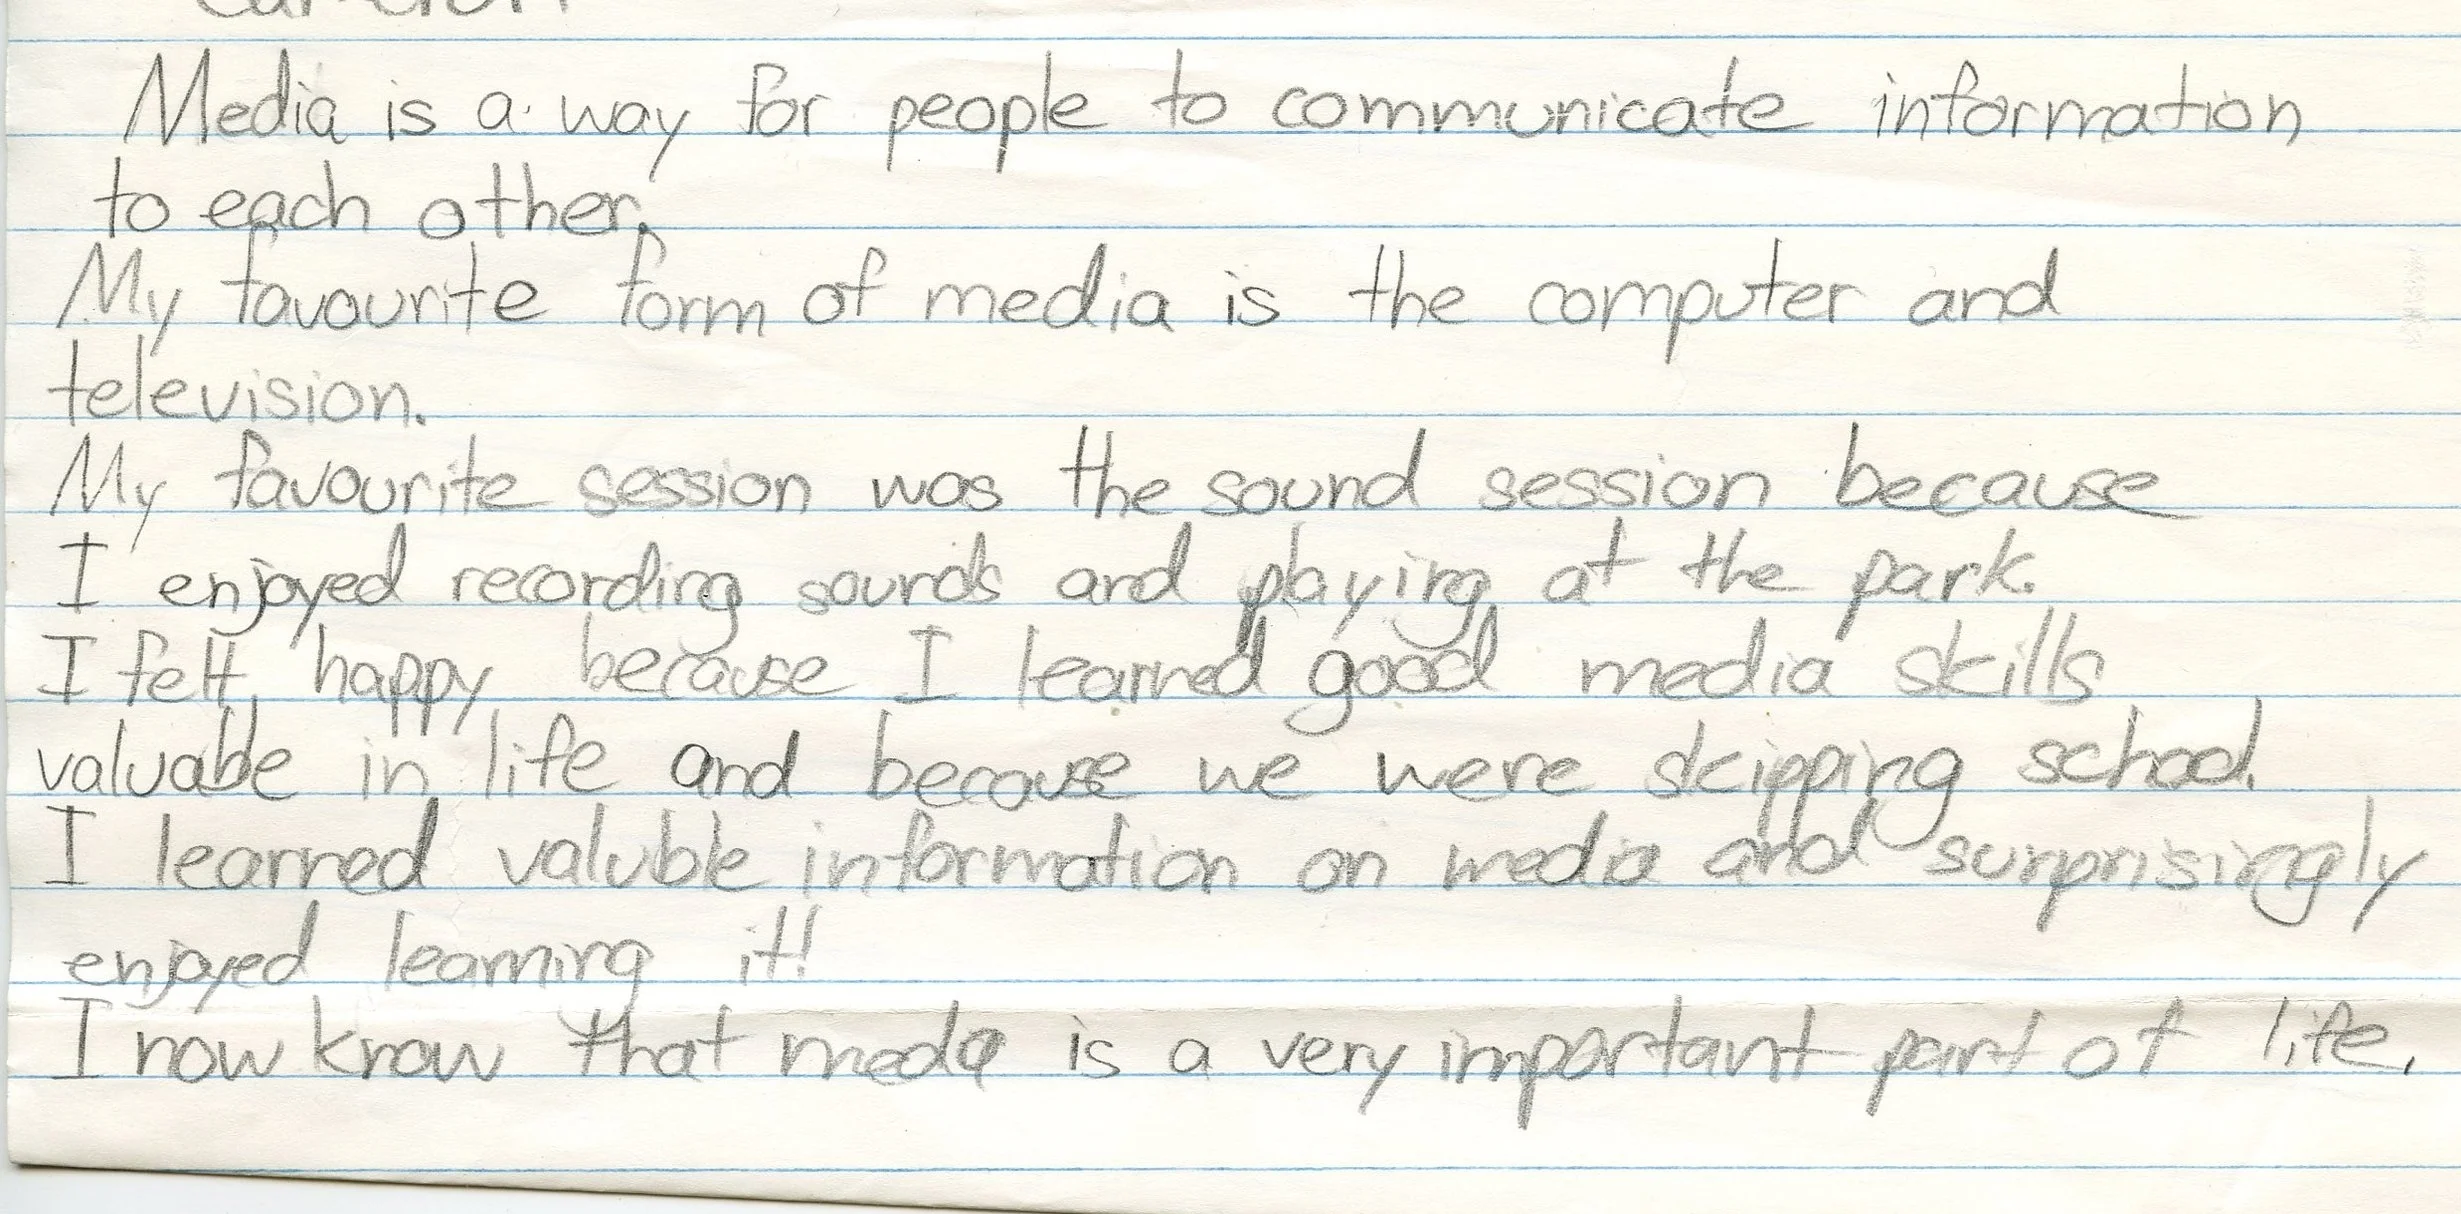 Cameron
Media is a way for people to communicate information
to each other.
My favourite form of media is the computer and
television.
My favourite session was the sound session because
I enjoyed recording sounds and playing at the park.
I felt happy because I learned good media skills
valuable in life and because we were skipping school.
I learned valuble information on media and surprisingly
enjoyed learning it!
I now know that media is a very important part of life.